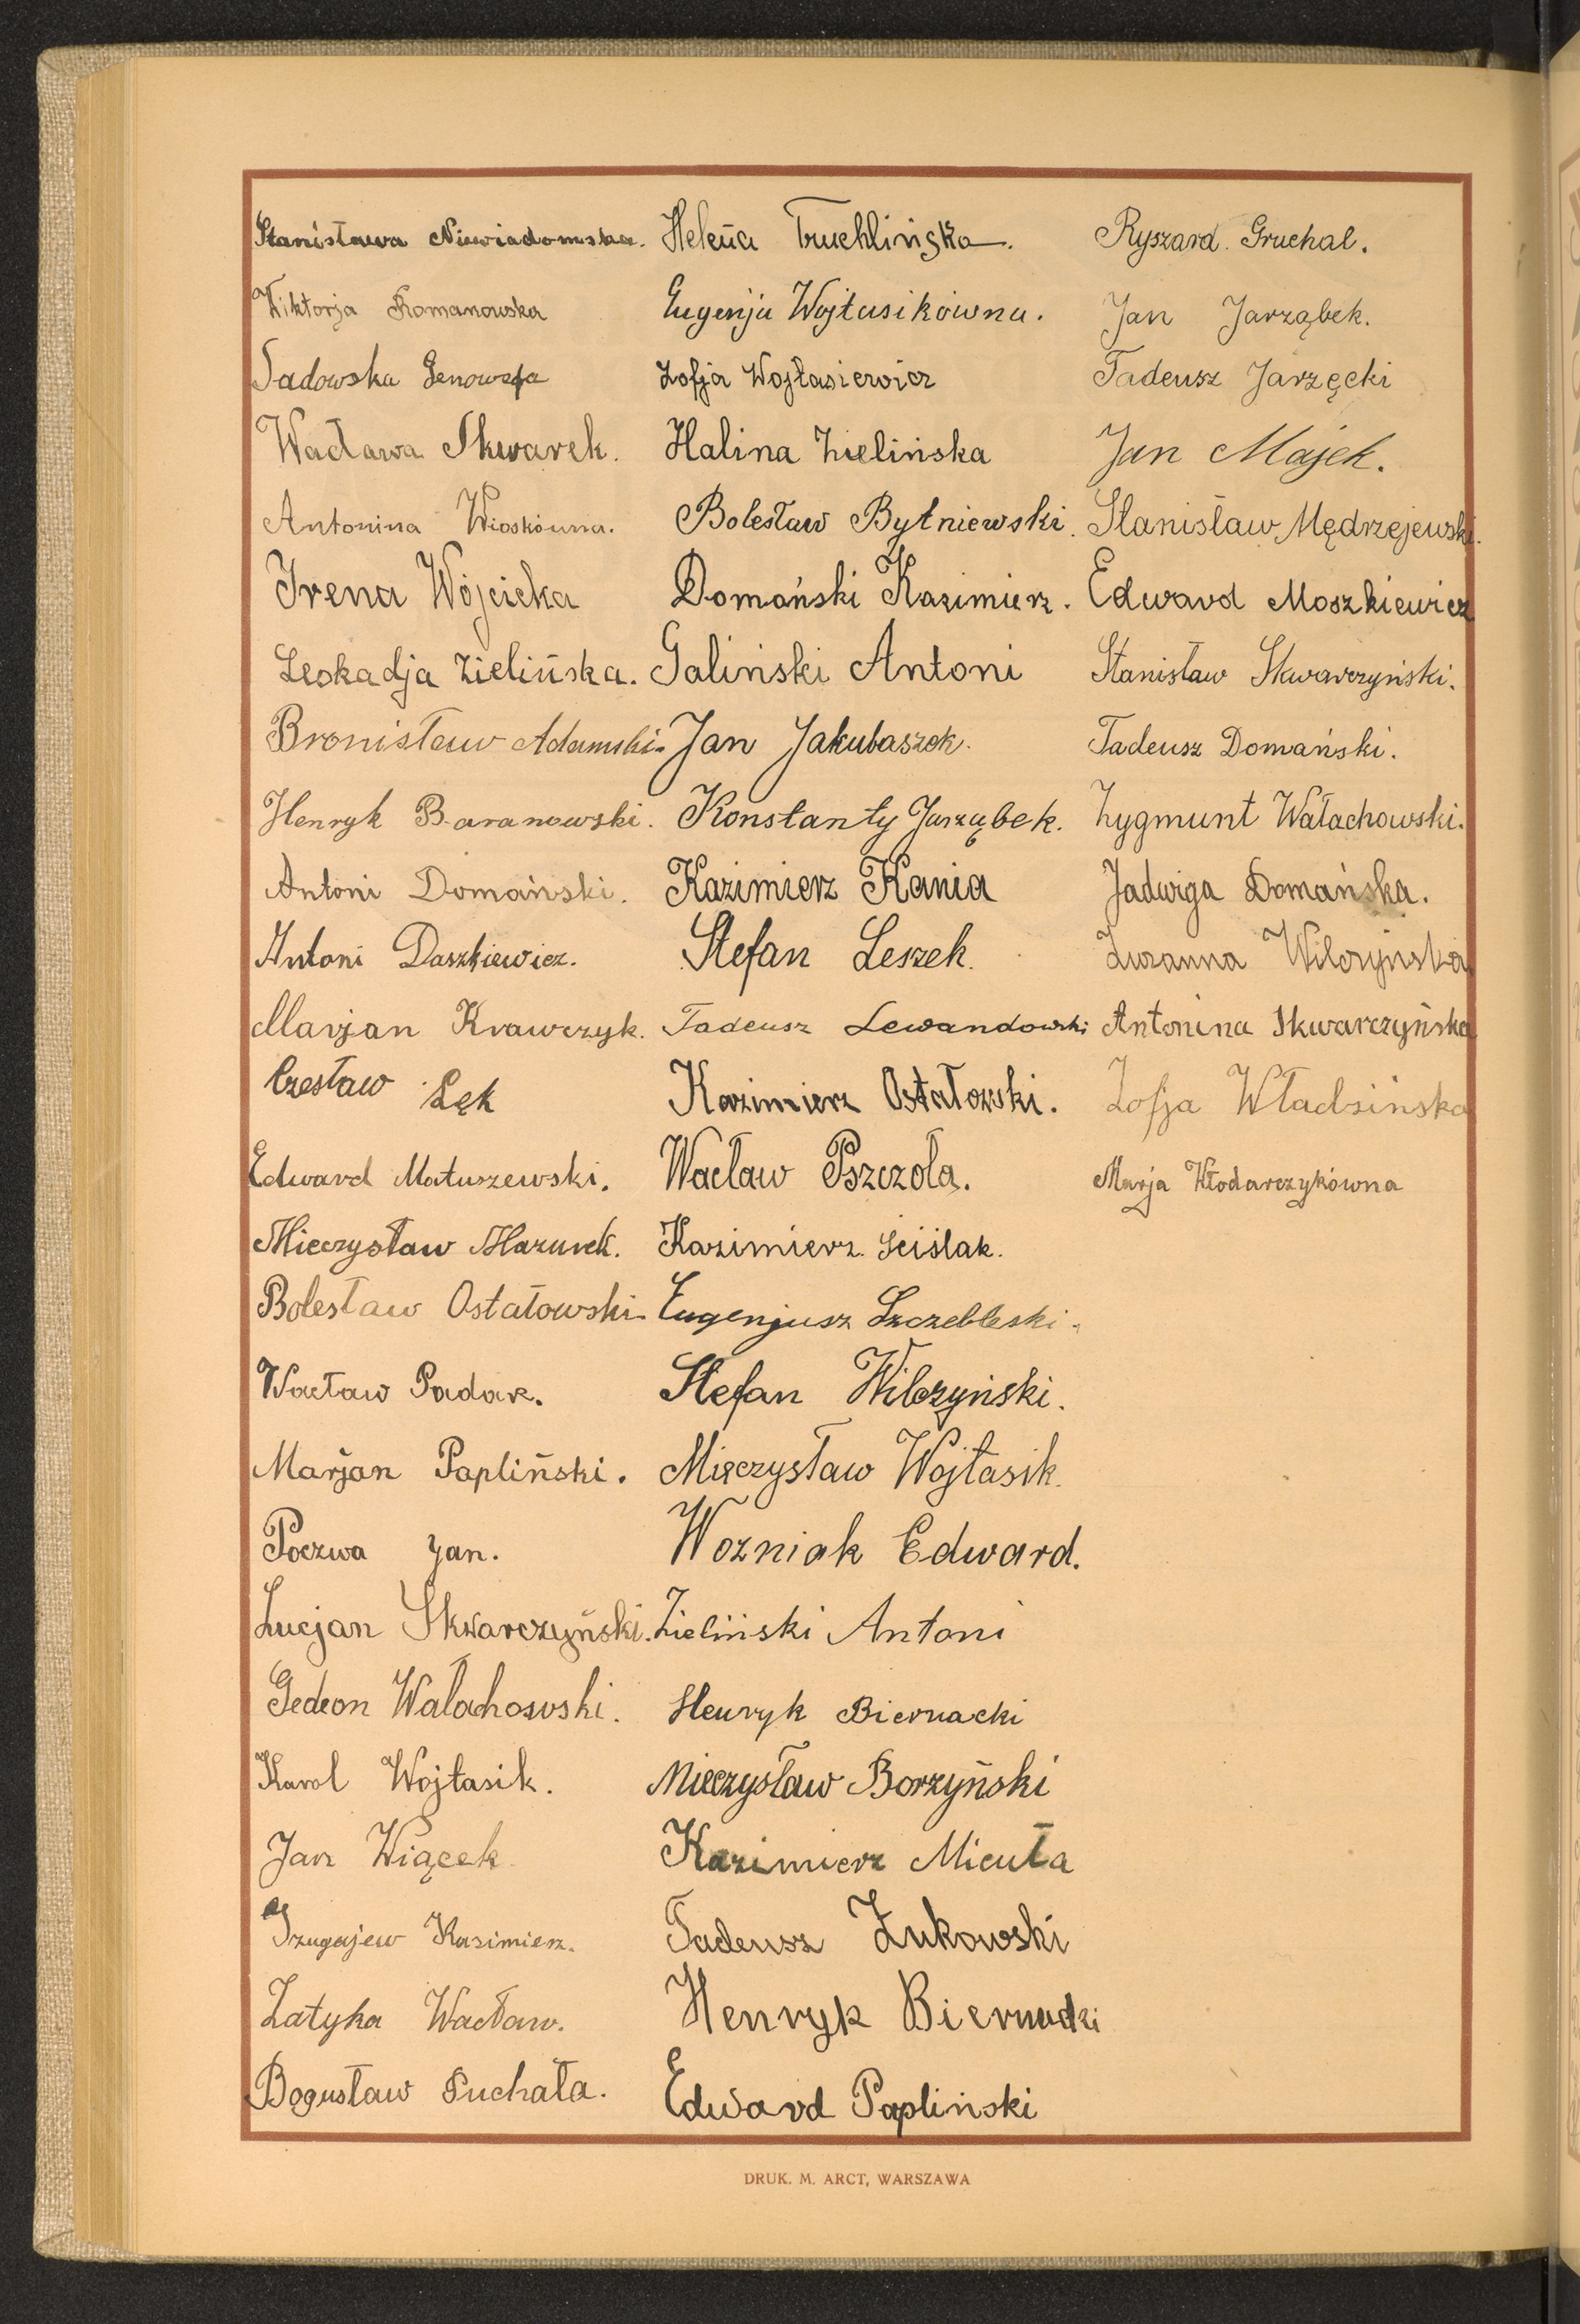 Stanisława Niewiadomska.
Wiktorja Romanowska
Sadowska Genowefa
Wacława Skwarek.
Antonina Wioskówna.
Irena Wójcicka
Leokadja Zielińska.
Bronisław Adamski.
Henryk Baranowski.
Antoni Domański.
Antoni Daszkiewicz.
Marjan Krawczyk.
Czesław Lęk
Edward Matuszewski.
Mieczysław Mazurek.
Bolesław Ostatowski.
Wacław Padar.
Marjan Papliński.
Poczwa Jan.
Lucjan Skwarczyński.
Gedeon Wałachowski.
Karol Wojtasik.
Jan Wiącek
Kazimierz.
Zatyka Wacław.
Bogusław Puchała.
Helena Truchlińska.
Eugenja Wojtasikówna.
Zofja Wojtasiewicz
Halina Zielińska
Bolesław Bytniewski.
Domański Kazimierz.
Galiński Antoni
Jan Jakubaszek.
Konstanty Jarząbek.
Kazimierz Kania
Stefan Leszek.
Tadeusz Lewandowski
Kazimierz Ostatowski.
Wacław Pszczoła.
Kazimierz Sciślak.
Eugenjusz Szczebleski.
Stefan Wilczyński.
Mieczysław Wojtasik.
Wozniak Edward.
Zieliński Antoni
Henryk Biernacki
Mieczysław Borzyński
Kazimierz Micuła
Tadeusz Żukowski
Henryk Biernacki
Edward Papliński
Ryszard Gruchal.
Jan Jarząbek.
Tadeusz Jarzęcki
Jan Majek.
Stanisław Mędrzejewski.
Edward Moszkiewicz
Stanisław Skwarczyński.
Tadeusz Domański.
Zygmunt Wałachowski.
Jadwiga Domańska.
Zuzanna Wilczyńska
Antonina Skwarczyńska
Zofja Władzińska
Marja Włodarczykówna
DRUK. M. ARCT, WARSZAWA